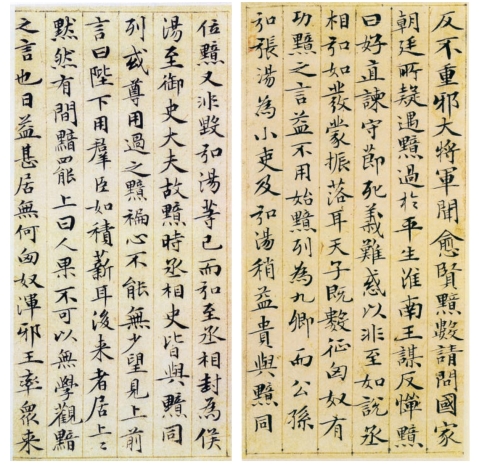 反不重邪大將軍聞愈賢黯數請問國家
朝廷所疑遇黯過於平生淮南王謀反憚黯
曰好直諫守節死義難惑以非至如說丞
相弘如發蒙振落耳天子既數征匈奴有
功黯之言益不用始黯列為九卿而公孫
弘張湯為小吏及弘湯稍益貴與黯同
位黯又非毀弘湯等已而弘至丞相封為侯
湯至御史大夫故黯時丞相史皆與黯同
列或尊用過之黯褊心不能無少望見上前
言曰陛下用羣臣如積薪耳後來者居上〻
默然有間黯罷上曰人果不可以無學觀黯
之言也日益甚居無何匈奴渾邪王率眾來